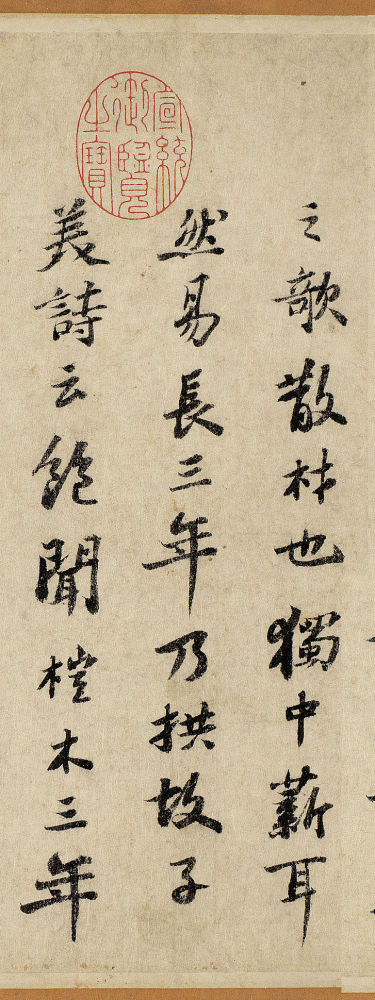 之歌散材也獨中薪耳
然易長三年乃拱故子
美詩云飽聞榿木三年
宣統御覽之寶